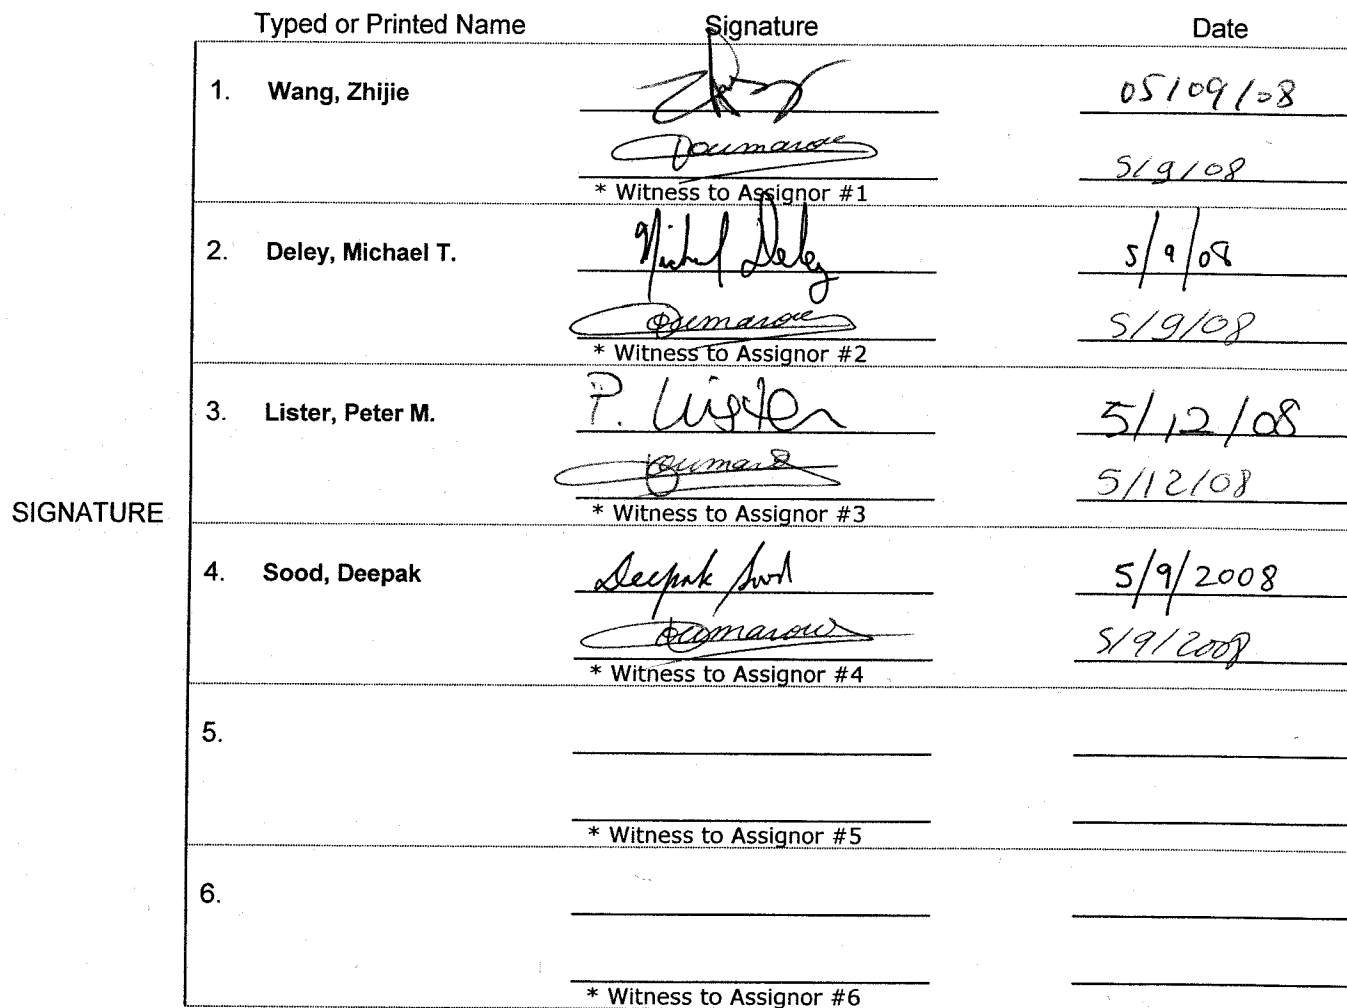 Typed or Printed Name Signature Date
1. Wang, Zhijie 05/09/08
5/9/08
* Witness to Assignor #1
2. Deley, Michael T. Michael Deley 5/9/08
5/9/08
* Witness to Assignor #2
3. Lister, Peter M. P. Lister 5/12/08
5/12/08
* Witness to Assignor #3
SIGNATURE
4. Sood, Deepak Deepak Sood 5/9/2008
5/9/2008
* Witness to Assignor #4
5.
* Witness to Assignor #5
6.
* Witness to Assignor #6